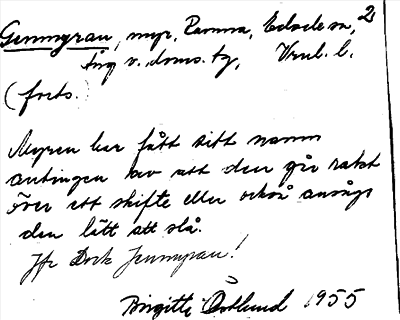 Gennmyran, myr, Ramna, Edsele sn, 2
Ång v. doms. tg, Vrul. l.
(forts.)
Myren har fått sitt namn
antingen av att den går rakt
över ett skifte eller också ansågs
den lätt att slå.
Jfr Dock Jennmyran!
Birgitta Östlund 1955